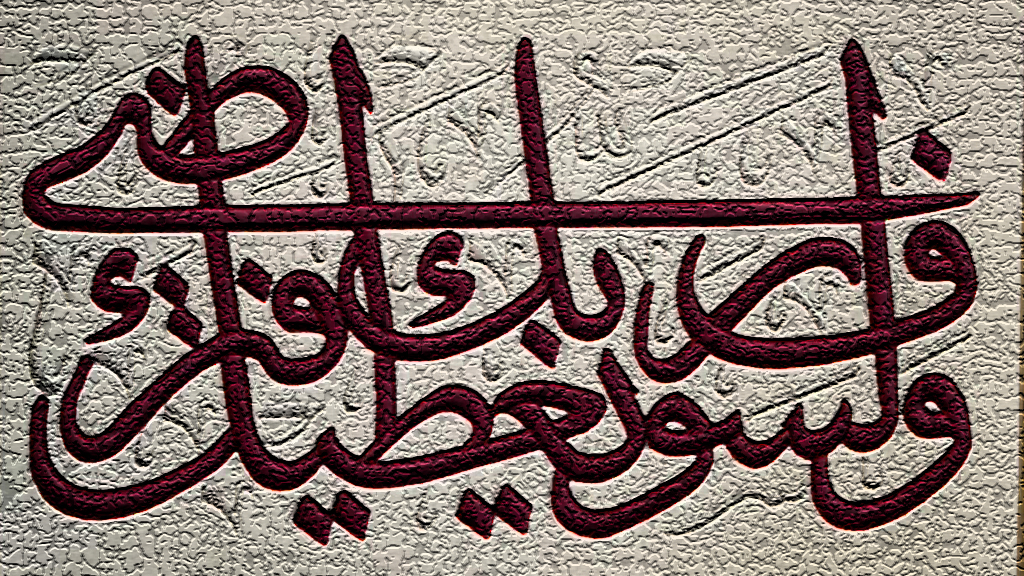 ولسوف يعطيك
ربك فترضى